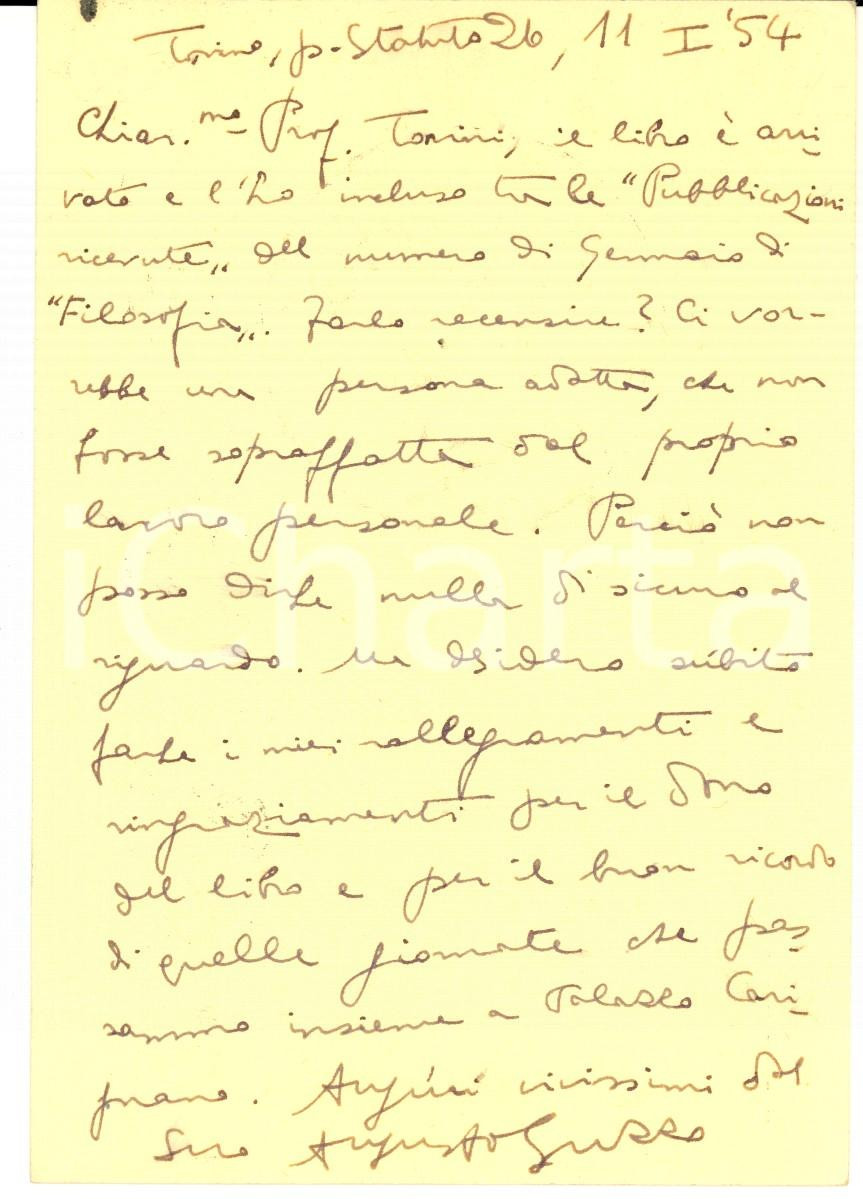 Torino, p. Statuto 26, 11 I '54
Chiar.mo Prof. Tonini, il libro è arri-
vato e l'ho incluso tra le "Pubblicazioni
ricevute„ del numero di Gennaio di
"Filosofia„. Farlo recensire? Ci vor-
rebbe una persona adatta, che non
fosse sopraffatta dal proprio
lavoro personale. Perciò non
posso dirLe nulla di sicuro al
riguardo. Ma desidero súbito
farLe i miei rallegramenti e
ringraziamenti per il dono
del libro e per il buon ricordo
di quelle giornate che pas-
sammo insieme a Palazzo Cari-
gnano. Augúri vivissimi dal
Suo Augusto Guzzo
iCharta